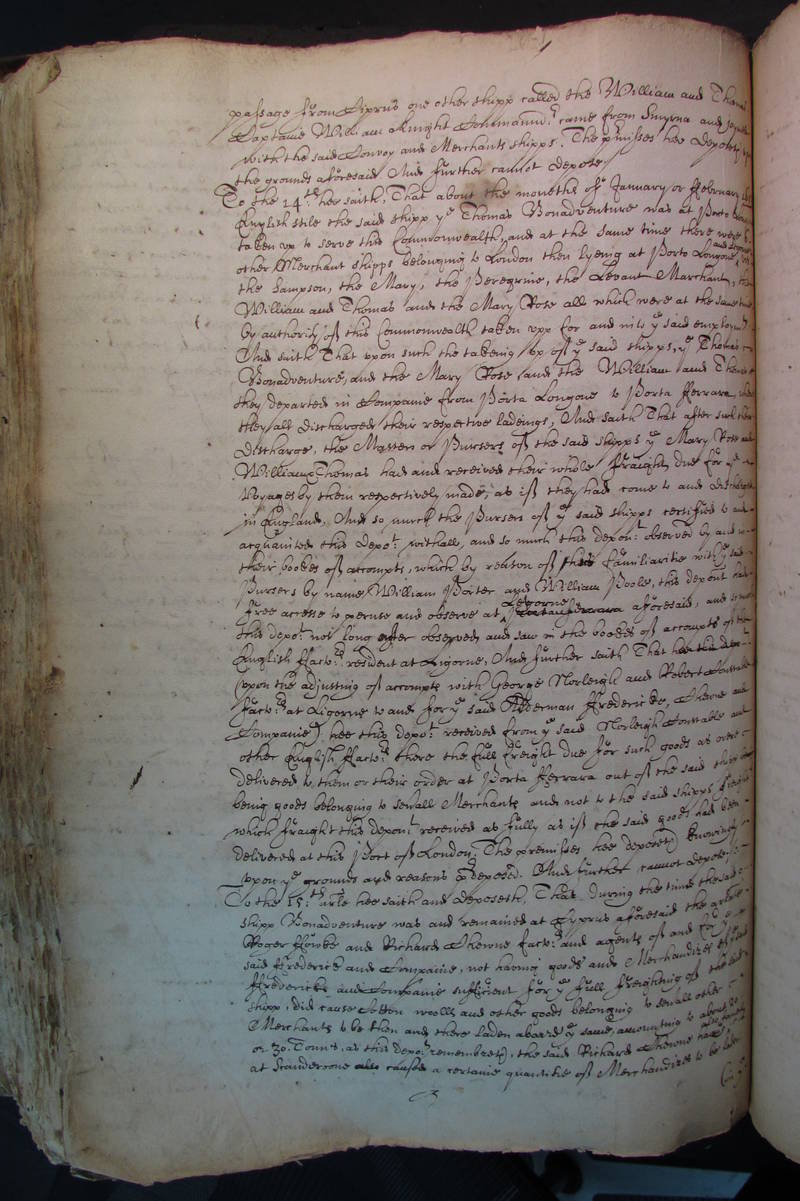 passage from Ciprus one other shipp called the William and Thomas
Captaine William Knight Commannd.r came from Smyrna and
with the said Convoy and Merchants shipps. The p.rmisses hee deposeth
the grounds aforesaid And further cannot depose./
To the 14.th hee saith, That about the moneths of January or ffebruary
English stile the said shipp y.e Thomas Bonadventure was at Porto
taken up to serve this Commonwealth, and at the same time there were
other Merchant shipps belonging to London then lyeing at Porto Longone and Legorne
the Sampson, the Mary, the Peregrine, the Levant Merchant, the
William and Thomas and the Mary Rose all which were at the same time
by authority of this Commonwealth taken upp for and into y.e said employm.t
And saith That upon such the takeing up of y.e said shipps, y.e Thomas
Bonadventure, and the Mary Rose and the William and Thomas
they departed in Companie from Porta Longone to Porta fferrara, where
they all discharged their respective ladeings, And saith That after such their
discharge, the Masters or Pursers of the said shipps y.e Mary Rose and
William & Thomas had and received their whole ffraight due for y.e
Voyages by them respectively made, as if they had come to and discharged
in England, And so much the Pursers of y.e said shipps certified to and
acquainted this Depo.t withall, and so much this depon.t observed by and in
their bookes of accompts, which by reason of his familiaritie with y.e said
Pursers by name William Porter and William Poole, this depon.t had
free accesse to peruse and observe at Legorne Porta fferrara aforesaid, and
this depo.t not long after observed and saw in the bookes of accompts of the
English ffact.rs resident at Ligorne, And further saith That hee this depo.t
(upon the adjusting of accompts with George Norleigh and Robert Constable
ffact.rs at Ligorne to and for y.e said Alderman ffredericke, Chewne and
Companie) hee this depo.t received from y.e said Norleigh Constable and
other English ffact.rs there the full freight due for such goods as were
delivered to them or their order at Porta fferrara out of the said shipp
being goods belonging to severall Merchants and not to the said shipps
which fraight this depon.t received as fully as if the said goods had been
delivered at this Port of London, The premisses hee deposeth knowingly
upon y.e grounds and reasons p.rdeposed. And further cannot depose./
To the 15.th arle hee saith and deposeth, That during the time the said
shipp Bonadventure was and remained at Cyprus aforesaid the arlate
Roger ffowke and Richard Chewne fact.rs and agents of and for y.e
said ffredericke and Companie, not having goods and Merchandizes of
ffredericke and Companie sufficient for y.e full freighting of the said
shipp, did cause Cotton woolls and other goods belonging to severall other
Merchants to be then and there laden aboard y.e same, amounting to about 20
or 30. Tonns, as this depo.t remembreth, the said Richard Chewne
at Scanderoone also caused a certaine quantitie of Merchandizes to be laden